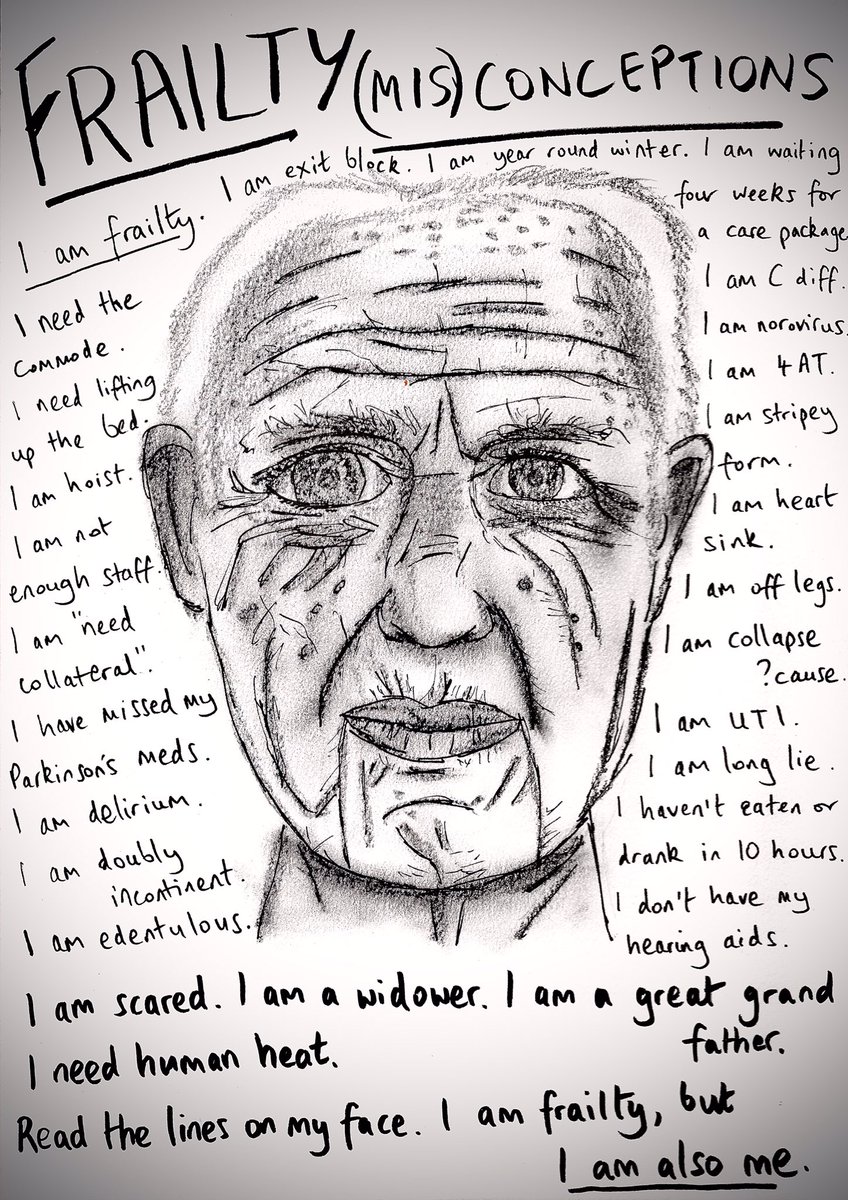 FRAILTY (MIS)CONCEPTIONS
I am frailty. I am exit block. I am year round winter. I am waiting
four weeks for
a care package
I need the
commode.
I need lifting
up the bed.
I am hoist.
I am not
enough staff.
I am "need
collateral".
I have missed my
Parkinson's meds.
I am delirium.
I am doubly
incontinent.
I am edentulous.
I am C diff.
I am norovirus.
I am 4AT.
I am stripey
form.
I am heart
sink.
I am off legs.
I am collapse
?cause.
I am UTI.
I am long lie.
I haven't eaten or
drank in 10 hours.
I don't have my
hearing aids.
I am scared. I am a widower. I am a great grand
father.
I need human heat.
Read the lines on my face. I am frailty, but
I am also me.